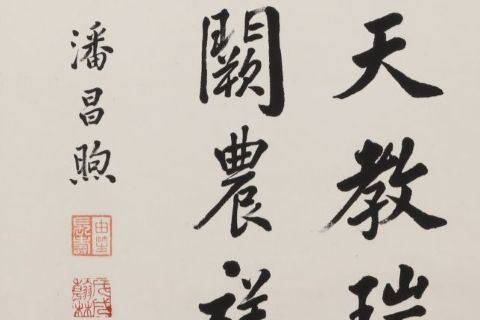 天教瑞
闕農祥
潘昌煦